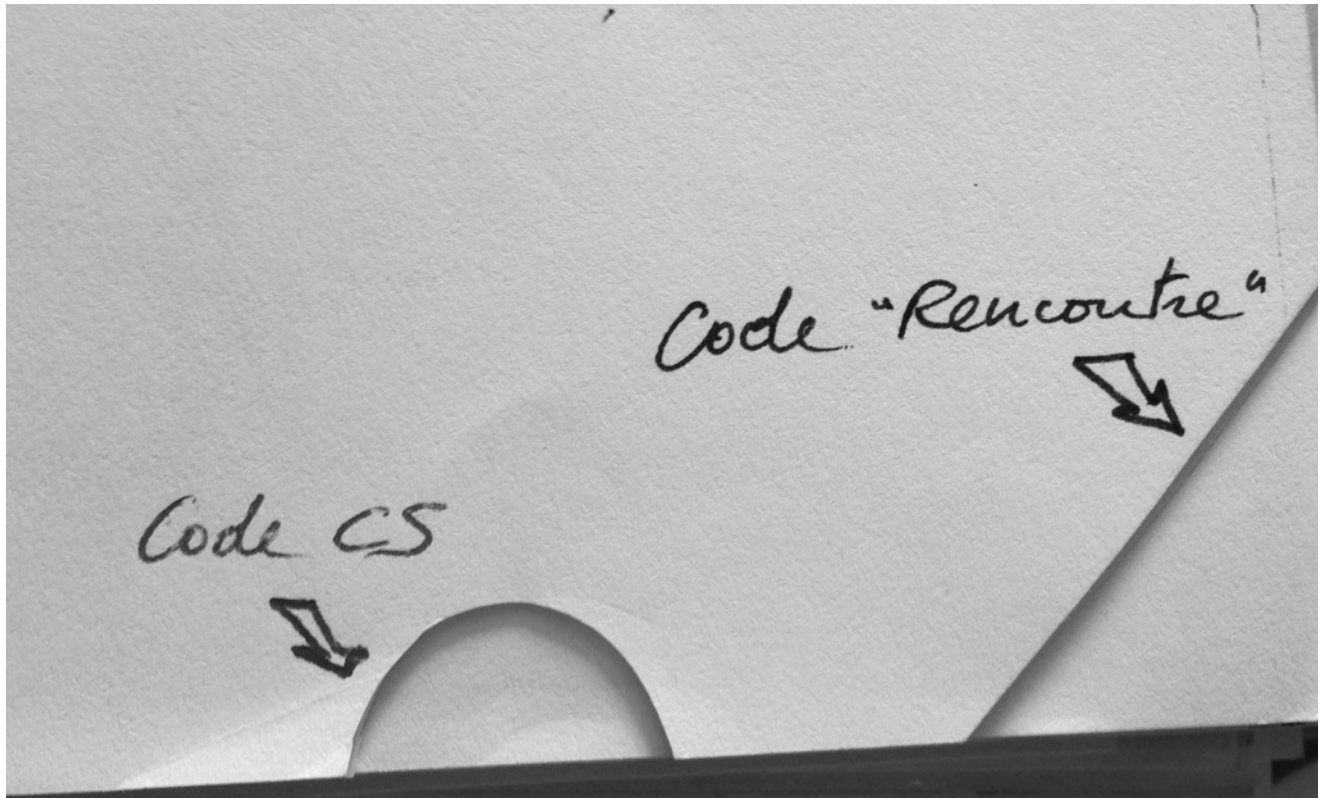 Code "Rencontre"
Code CS